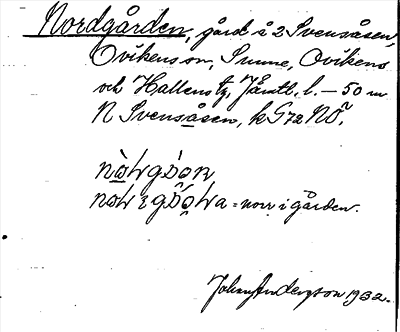 Nordgården, gård å 2 Svensåsen,
Ovikens sn, Sunne, Ovikens
och Hallens tg, Jämtl. l. – 50 m
N Svensåsen, k G72 NÖ.
= norr i gården.
Johan Anderson 1932.